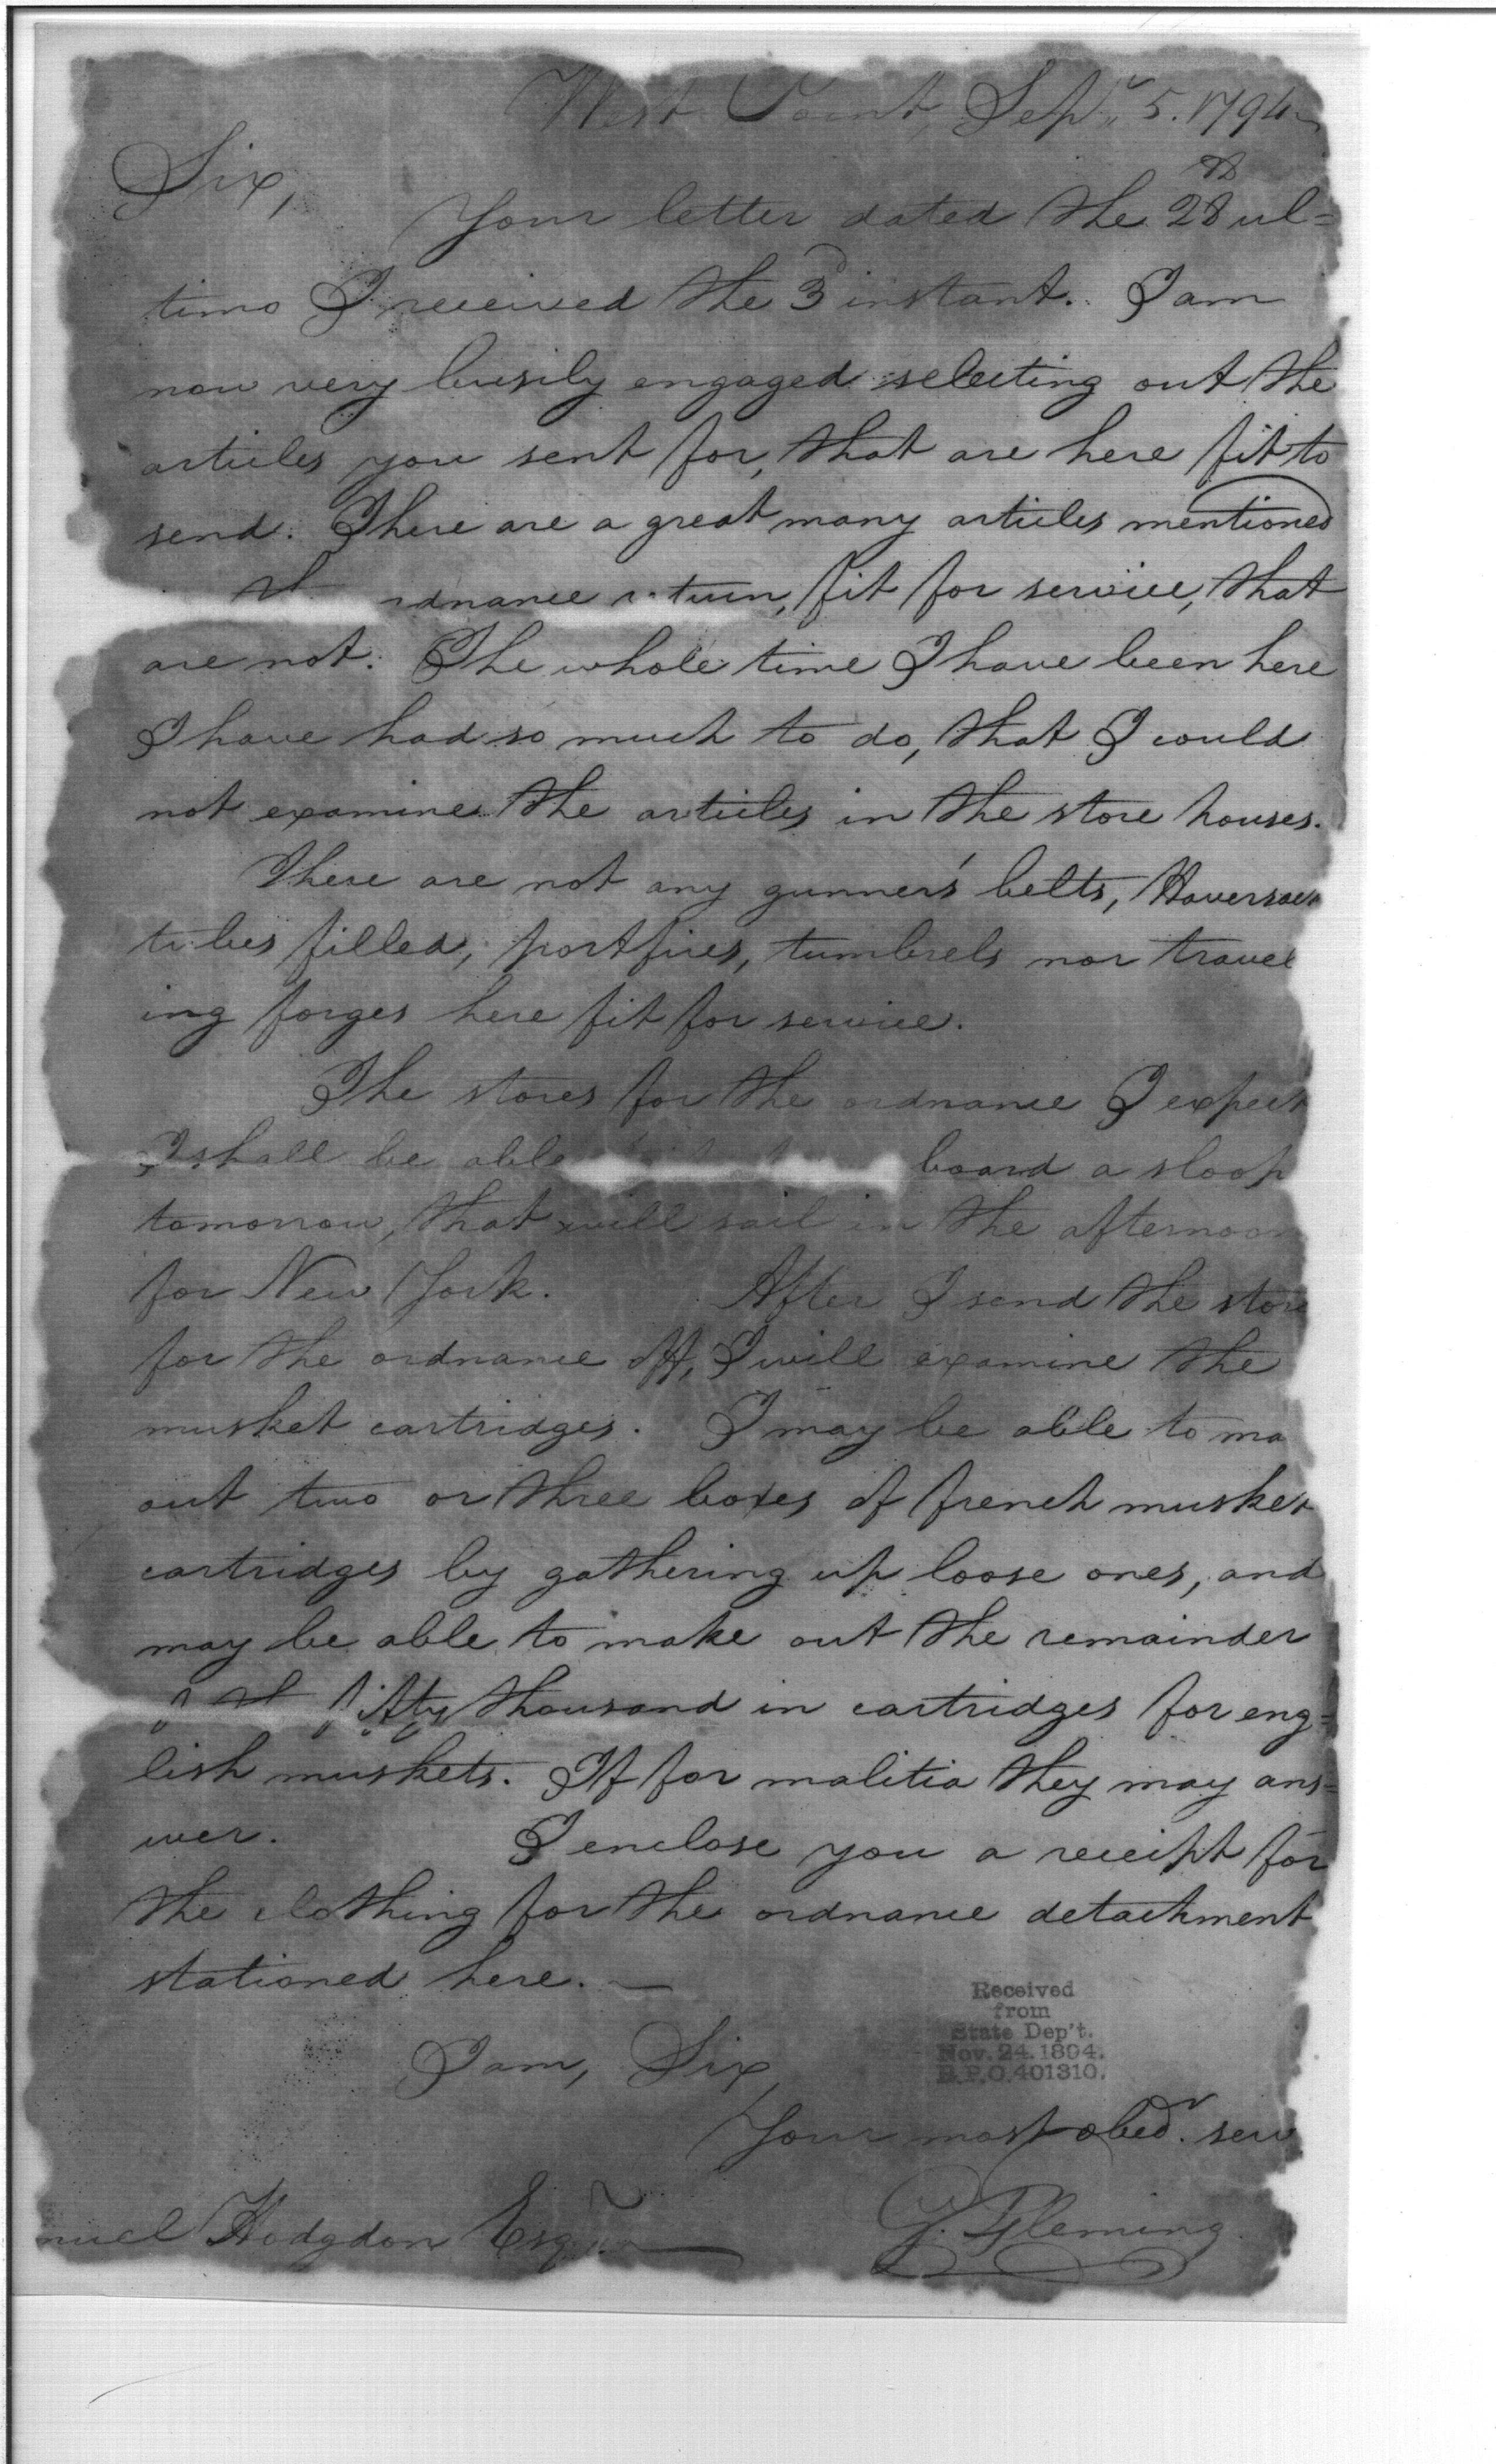 West Point, Sepr. 5. 1794
Sir,
Your letter dated the 28th ul=
timo I received the 3d instant. I am
now very busily engaged selecting out the
articles you sent for, that are here fit to
send. There are a great many articles mentioned
ordnance return, fit for service, that
are not. The whole time I have been here
I have had so much to do, that I could
not examine the articles in the store houses.
There are not any gunner's belts, Haversack
tubes filled, portfires, tumbrels nor travel
ing forges here fit for service.
The stores for the ordnance I expect
I shall be able board a sloop
tomorrow, that will sail in the afternoon
for New York. After I send the store
for the ordnance off, I will examine the
musket cartridges. I may be able to ma
out two or three boxes of french musket
cartridges by gathering up loose ones, and
may be able to make out the remainder
of the fifty thousand in cartridges for eng=
lish muskets. If for malitia they may ans=
wer. I enclose you a receipt for
the clothing for the ordnance detachment
stationed here. —
I am, Sir,
Your most obedr. serv
G. Fleming
muel Hodgdon Esqr.
Received
from
State Dep't.
Nov. 24. 1894.
R.P.O. 401310.